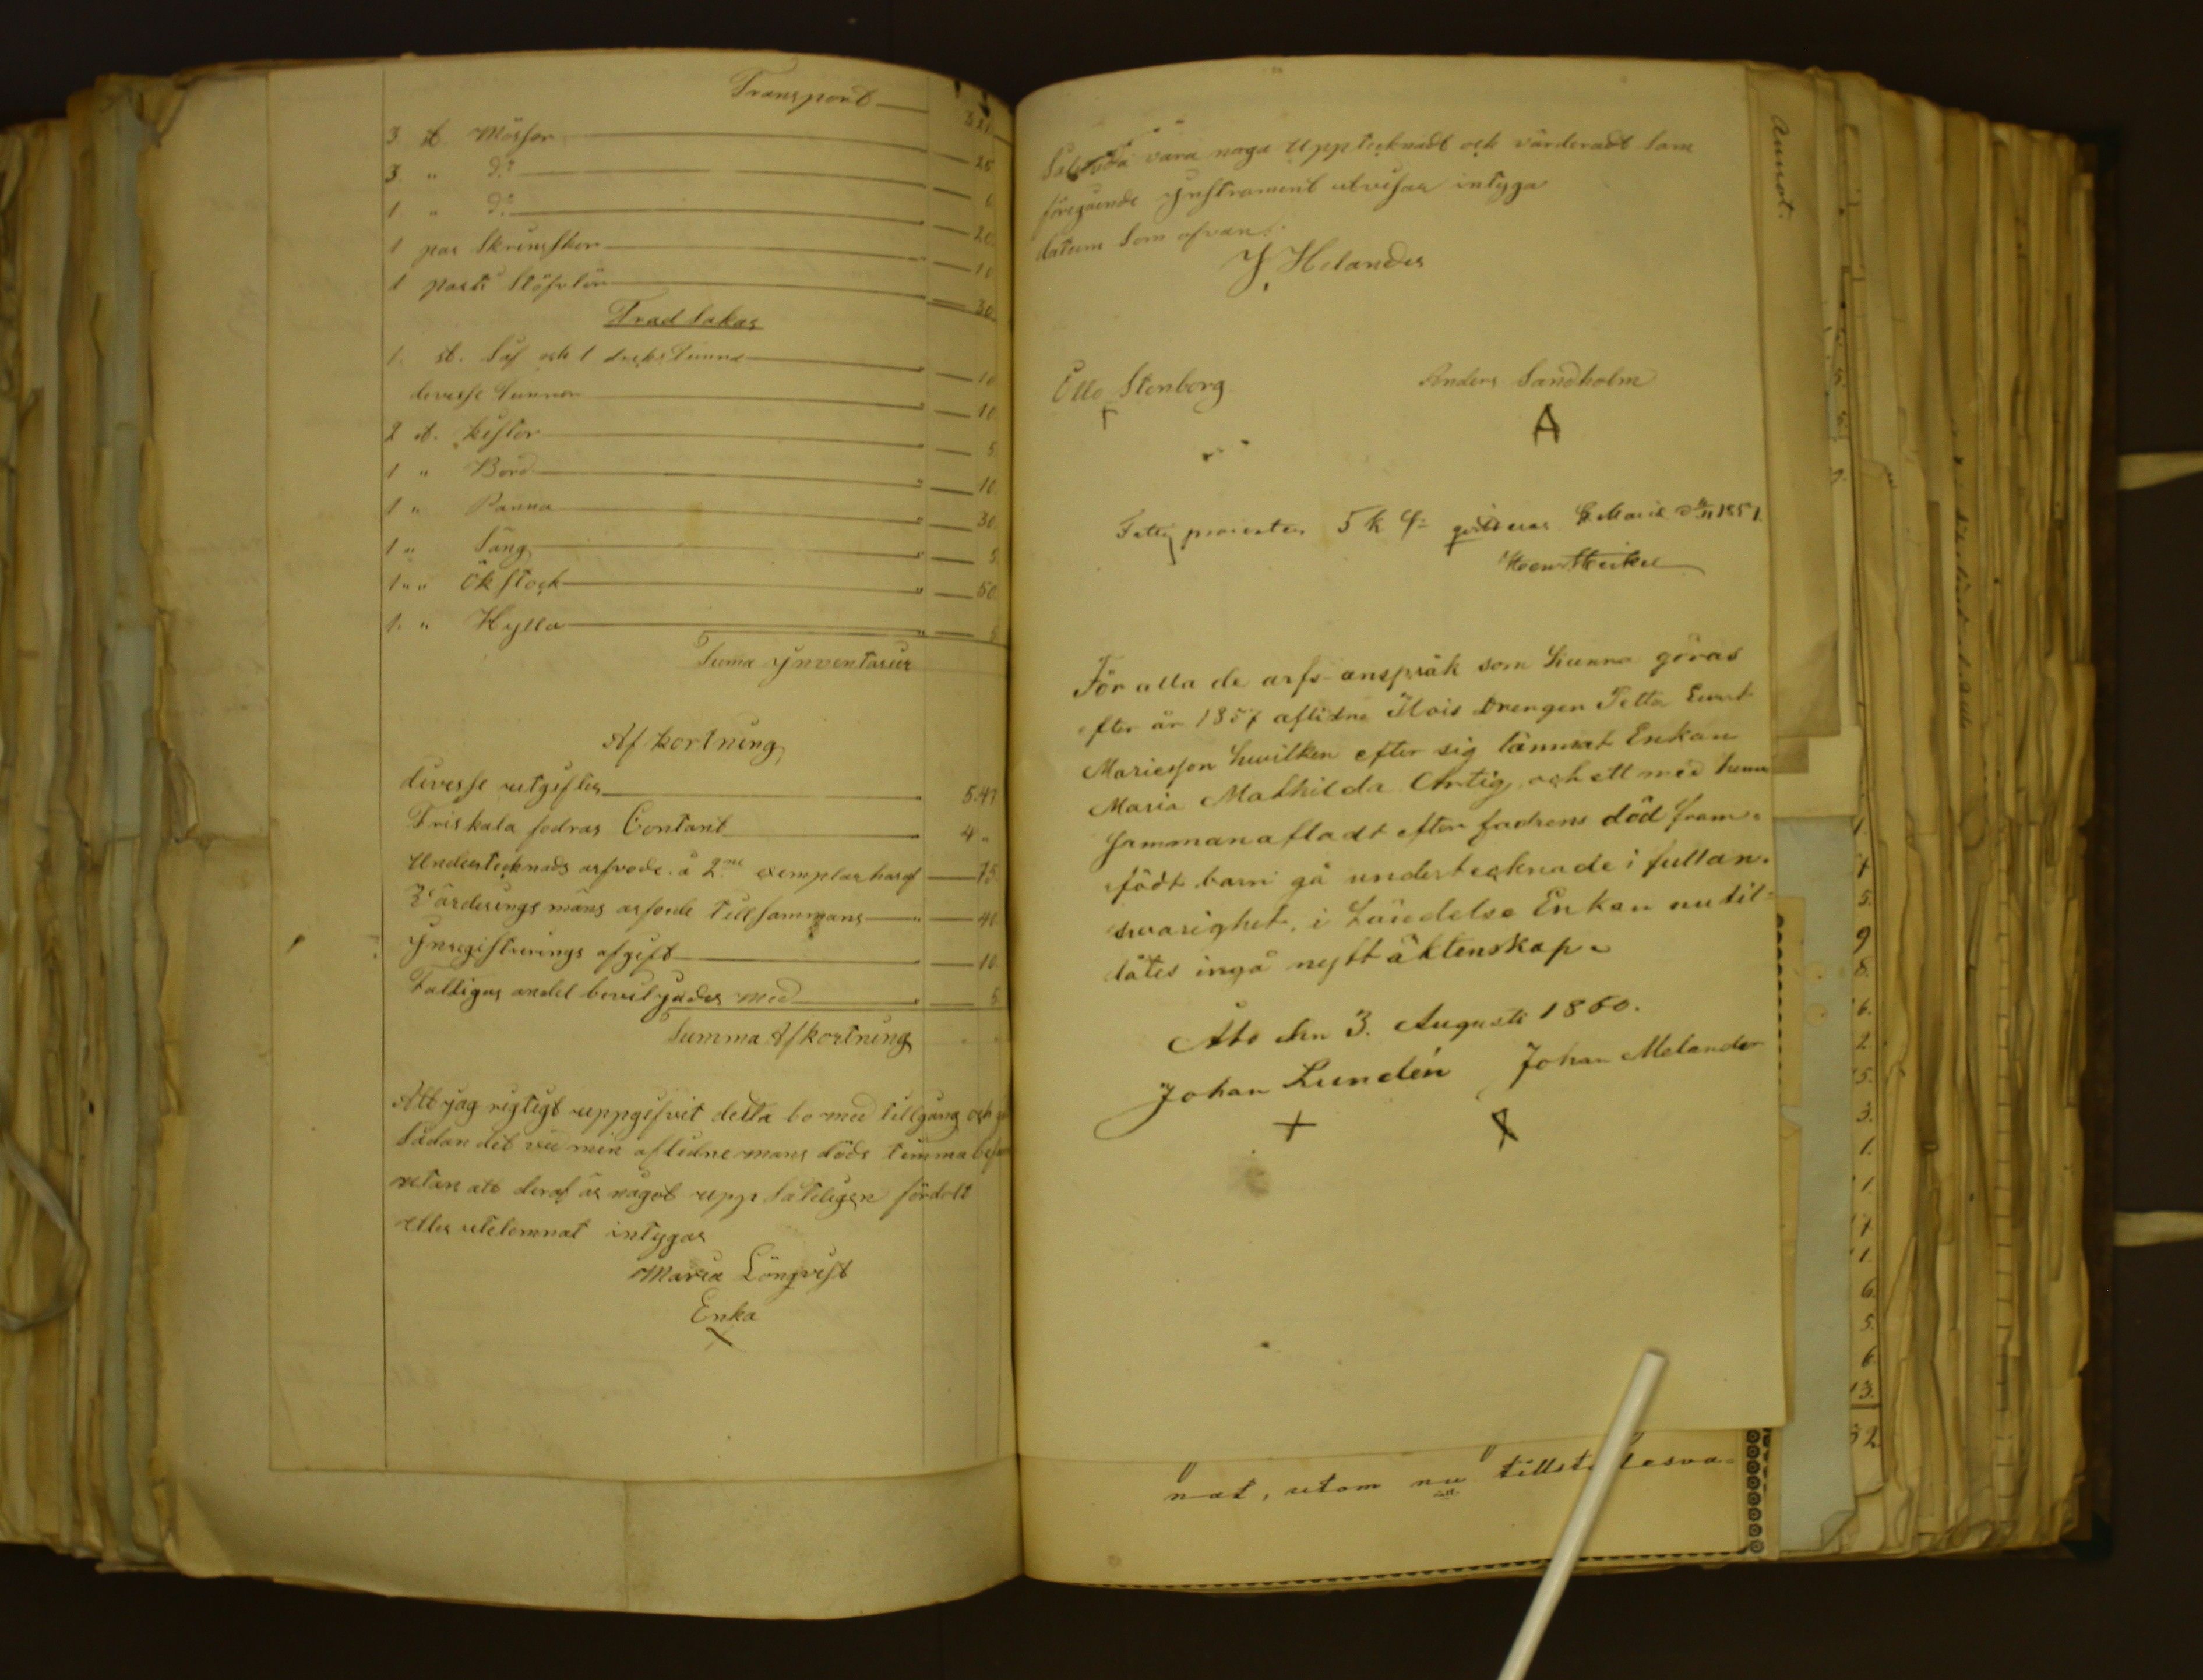 Transport
3 st. Mössor — 25
3. " D:o — 6
1. " D:o — 20.
1 par Skrinskor — 10
1 partie Stöflor — 30
Träd Sakar
1. st. Såf och 1 drickstunna — 10
diverse tunnor — 10
2 st. Kistor — 5
1 " Bord — 10.
1 " Panna — 30.
1 " Säng — 5
1 " " Ökstock — 50.
1. " Hylla
Suma Ynventarier
Afkortning
diverse utgifter 5.47
Friskala fodras Contant 4 "
Undertecknads arfvode å 2:ne exemplar häraf — 75
Värderings mäns arfvode tillsammans — 40.
Ynregistrerings afgift — 10.
Fattigas andel beviljades med — 5
Summa Afkortning
Att jag rigtigt uppgifvit detta bo med tillgång och
Sådan det vid min aflidne mans döds timma
utan att deraf är något uppsåteligen fördolt
eller utelemnat intygar
Maria Lönqvist
Enka
vara noga Upptecknadt och värderadt som
föregående Ynstrument utvisar intyga
datum som ofvan:
J Helander
Otto Stenberg Anders Sandholm
A
Fattig procenten 5 k S: qvitteras S:t Marie 1857.
För alla de arfs-anspråk som kunna göras
efter år 1857 aflidne Ilois Drengen Petter Evert
Mariesson hwilken efter sig lämnat Enkan
Maria Mathilda Artig, och ett med henne
sammanafladt efter fadrens död fram-
födt barn gå undertecknade i fullan-
swarighet, i händelse Enkan nu til-
låtes ingå nytt äktenskap.
Åbo den 3. Augusti 1860.
Johan Lundén Johan Melander
+ X
nat, utom nu
Annot.